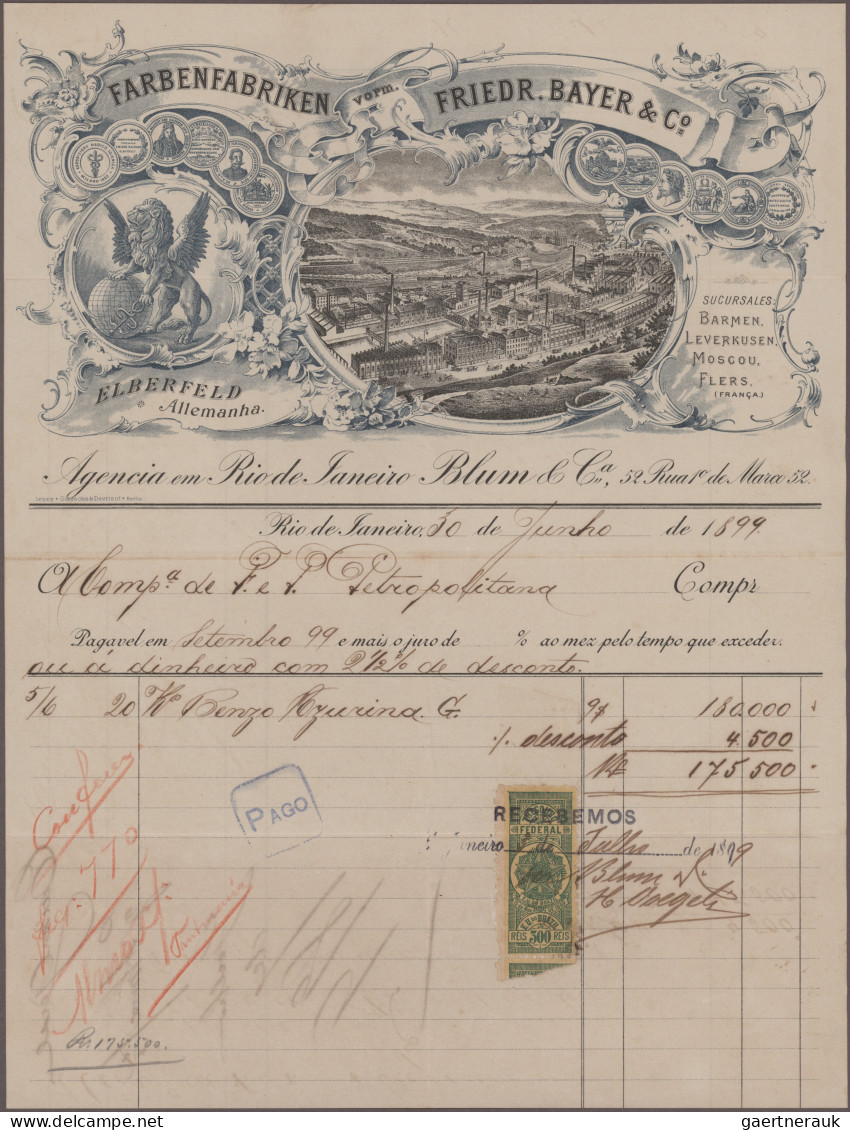 FARBENFABRIKEN vorm. FRIEDR. BAYER & Cº
SUCURSALES:
BARMEN,
LEVERKUSEN,
MOSCOU,
FLERS,
(FRANÇA.)
ELBERFELD
Allemanha.
Agencia em Rio de Janeiro Blum & Cª, 52 Rua 1º de Março 52.
Rio de Janeiro, 30 de Junho de 1899
A Compª de F. e T. Petropolitana Compr
Pagavel em Setembro 99 e mais o juro de % ao mez pelo tempo que exceder.
ou á dinheiro com 2 1/2 % de desconto.
5/6 20 Kº Benzo Azurina G. 9$ 180.000
desconto 4.500
175.500
PAGO
RECEBEMOS
neiro de Julho de 1899
Blum
FEDERAL
E.U. DO BRAZIL
REIS 300 REIS
770
Rs. 175.500.
gaertnerauk